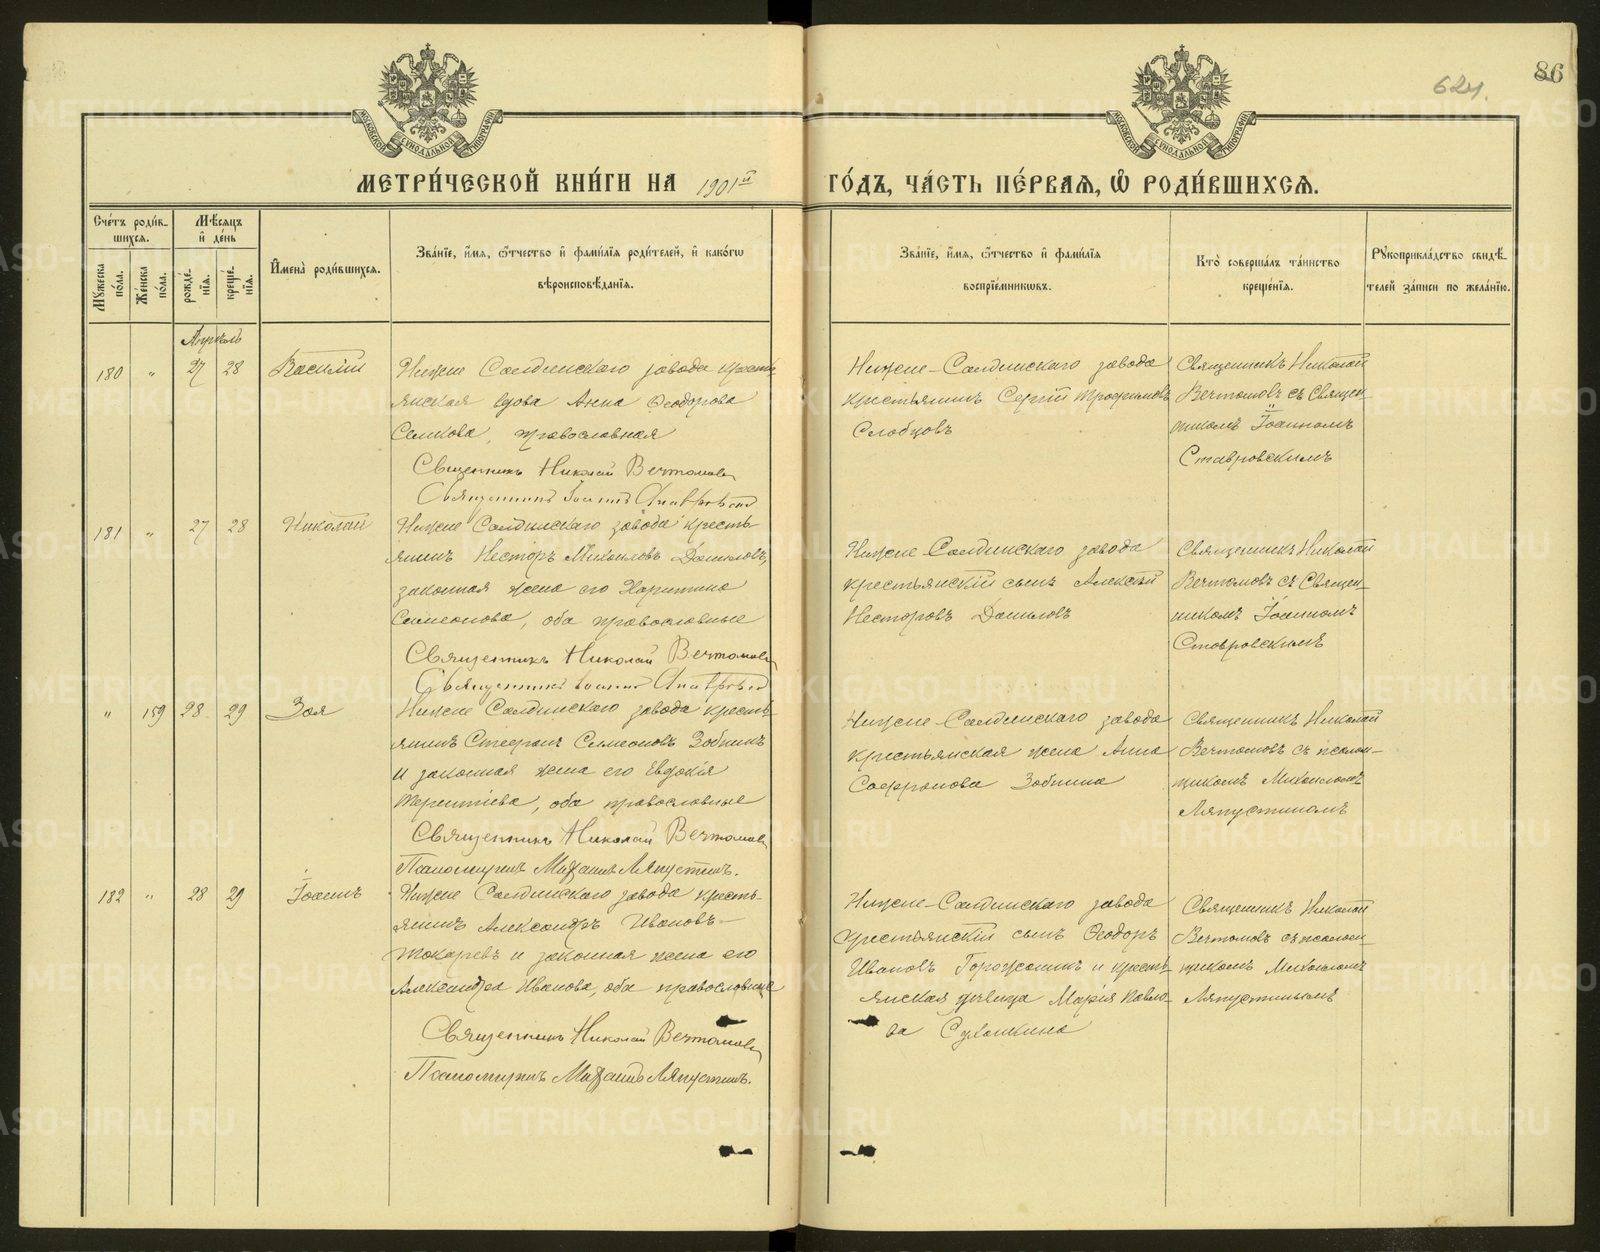 86
624.
МЕТРИ́ЧЕСКОЙ КНИ́ГИ НА 1901й ГО́ДЪ, ЧА́СТЬ ПЕ́РВАѦ, Ѡ҆ РОДИ́ВШИХСѦ.
Сче́тъ роди́в-
шихся.
Мѣ́сяцъ
и҆ де́нь
Мꙋ́жеска по́ла.
Же́нска по́ла.
рожде́-нїя.
креще́-нїя.
И҆мена̀ роди́вшихся.
Зва́нїе, и҆́мя, ѻ҆́тчество и҆ фами́лїя роди́телей, и҆ како́гѡ
вѣроисповѣ́данїя.
Зва́нїе, и҆́мя, ѻ҆́тчество и҆ фами́лїя
воспрїе́мникѡвъ.
Кто̀ соверша́лъ та́инство
креще́нїя.
Рꙋкоприкла́дство свидѣ́-
телей за́писи по жела́нїю.
Апрѣль
180 " 27 28 Василій
Нижне Салдинскаго завода кресть-
янская вдова Анна Ѳеодорова
православная
Священникъ Николай Вечтомовъ
Священникъ Іоаннъ Ставровскій
Нижне-Салдинскаго завода
крестьянинъ Сергій Трофимовъ
Слобцовъ
Священникъ Николай
Вечтомовъ съ Священ-
никомъ Іоанномъ
Ставровскимъ
181 " 27 28 Николай
Нижне Салдинскаго завода кресть-
янинъ Несторъ Михаиловъ Даниловъ,
законная жена его Харитина
Симеонова, оба православные
Священникъ Николай Вечтомовъ
Священникъ Іоаннъ Ставровскій
Нижне-Салдинскаго завода
крестьянскій сынъ Алексѣй
Несторовъ Даниловъ
Священникъ Николай
Вечтомовъ съ Священ-
никомъ Іоанномъ
Ставровскимъ
" 159 28 29 Зоя
Нижне Салдинскаго завода кресть-
янинъ Стефанъ Симеоновъ Зобнинъ
и законная жена его Евдокія
Терентіева, оба православные
Священникъ Николай Вечтомовъ
Псаломщикъ Михаилъ Ляпустинъ.
Нижне-Салдинскаго завода
крестьянская жена Анна
Сафронова Зобнина
Священникъ Николай
Вечтомовъ съ псалом-
щикомъ Михаиломъ
Ляпустинымъ
182 " 28 29 Іоаннъ
Нижне Салдинскаго завода кресть-
янинъ Александръ Ивановъ
Токаревъ и законная жена его
Александра Иванова, оба православные
Священникъ Николай Вечтомовъ
Псаломщикъ Михаилъ Ляпустинъ.
Нижне-Салдинскаго завода
крестьянскій сынъ Ѳеодоръ
Ивановъ Горожанинъ и кресть-
янская дѣвица Марія Павло-
ва
Священникъ Николай
Вечтомовъ съ псалом-
щикомъ Михаиломъ
Ляпустинымъ
METRIKI.GASO-URAL.RU